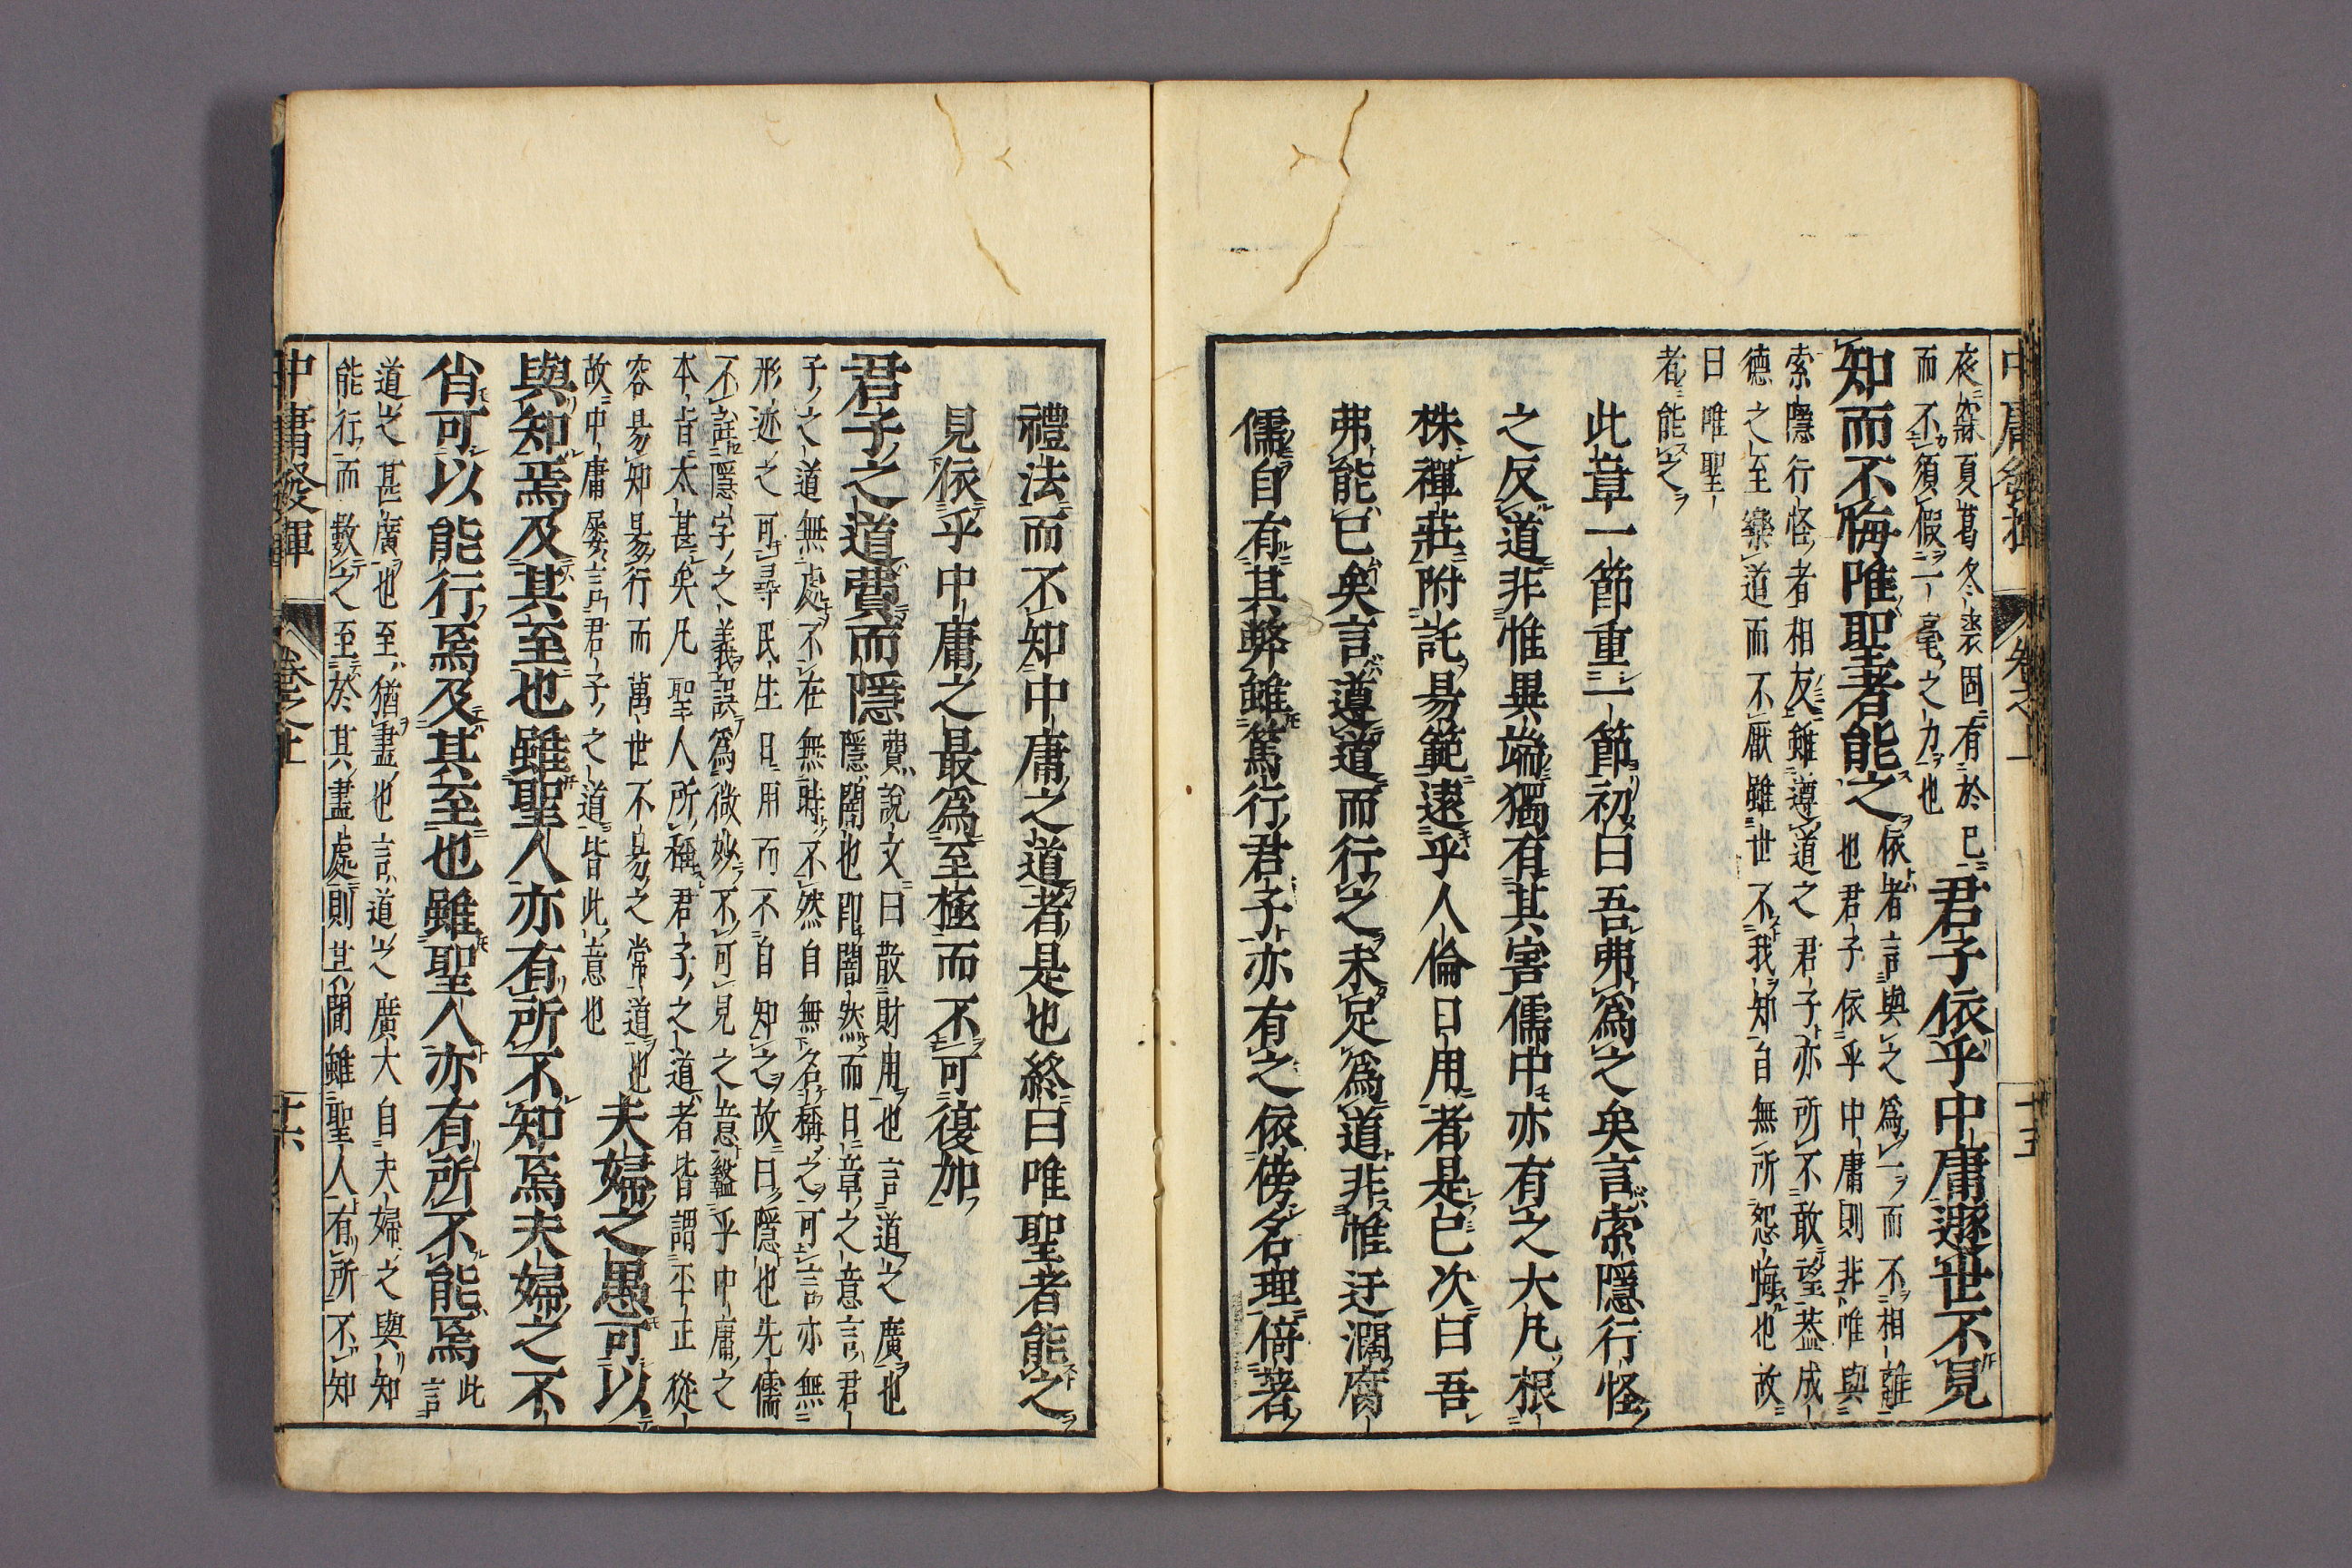 中庸發揮 卷之上 十五
夜寐夏葛冬裘固有於已
而不須假一毫之力也
君子依乎中庸遯世不見
知而不悔唯聖者能之
依者言與之爲一而不相離
也君子依乎中庸則非唯與
索隱行怪者相反雖遵道之君子亦所不敢望蓋成
德之至樂道而不厭雖世不我知自無所怨悔也故
曰唯聖
者能之
此章一節重一節初曰吾弗爲之矣言索隱行怪
之反道非惟異端獨有其害儒中亦有之大凡根
株禪莊附託易範遠乎人倫日用者是已次曰吾
弗能已矣言遵道而行之未足爲道非惟迂濶腐
儒自有其弊雖篤行君子亦有之依傍名理倚著
禮法而不知中庸之道者是也終曰唯聖者能之
見依乎中庸之最爲至極而不可復加
君子之道費而隱
費說文曰散財用也言道之廣也
隱闇也卽闇然而日章之意言君
子之道無處不在無時不然自無名稱之可言亦無
形迹之可尋民生日用而不自知之故曰隱也先儒
不註隱字之義誤爲微妙不可見之意盭乎中庸之
本旨太甚矣凡聖人所稱君子之道者皆謂平正從
容易知易行而萬世不易之常道也
故中庸屢言君子之道皆此意也
夫婦之愚可以
與知焉及其至也雖聖人亦有所不知焉夫婦之不
肖可以能行焉及其至也雖聖人亦有所不能焉
此
言
道之甚廣也至猶盡也言道之廣大自夫婦之與知
能行而數之至於其盡處則其間雖聖人有所不知
中庸發揮 卷之上 十六